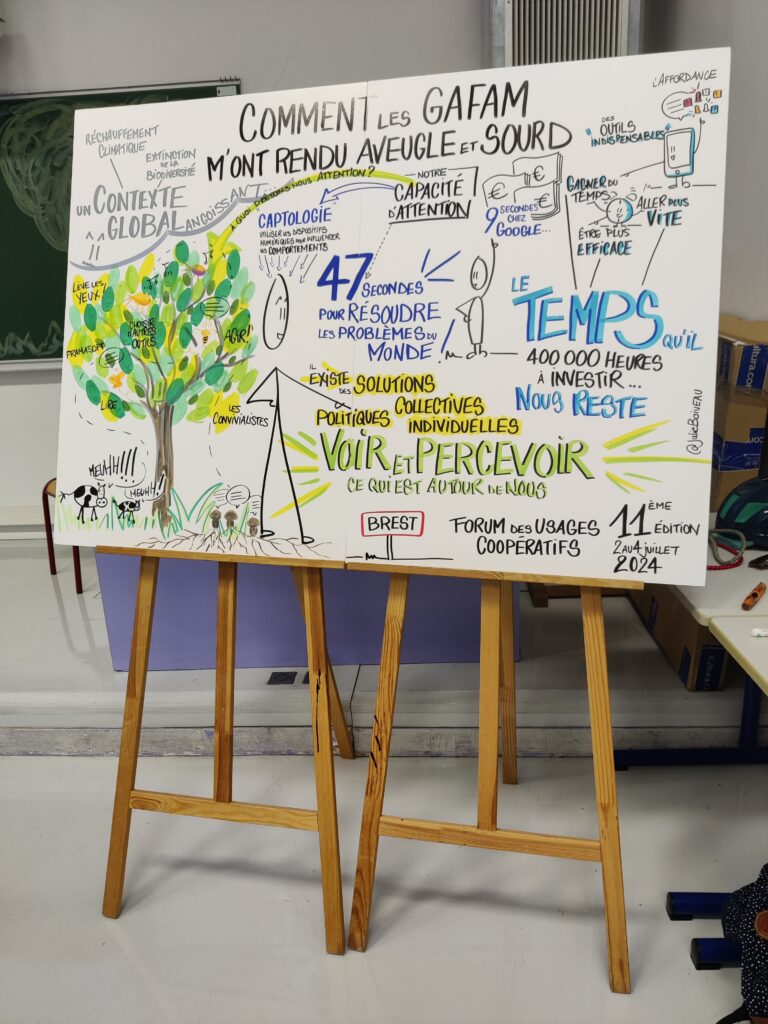 COMMENT LES GAFAM
M'ONT RENDU AVEUGLE ET SOURD
RÉCHAUFFEMENT
CLIMATIQUE
EXTINCTION
DE LA
BIODIVERSITÉ
UN CONTEXTE
GLOBAL ANGOISSANT
À QUOI PRÊTONS NOUS ATTENTION ?
NOTRE
CAPACITÉ
D'ATTENTION
CAPTOLOGIE
UTILISER LES DISPOSITIFS
NUMÉRIQUES POUR INFLUENCER
LES COMPORTEMENTS
9 SECONDES
CHEZ
GOOGLE...
€
€
€
L'AFFORDANCE
DES
OUTILS
INDISPENSABLES
GAGNER DU
TEMPS
ÊTRE PLUS
EFFICACE
ALLER PLUS
VITE
47 SECONDES
POUR RÉSOUDRE
LES PROBLÈMES DU
MONDE
LE
TEMPS QU'IL
400 000 HEURES
À INVESTIR...
NOUS RESTE
LÈVE LES
YEUX
CHOISIR
D'AUTRES
OUTILS
AGIR!
FRAMASOFT
LIRE
LES
CONVIVIALISTES
IL
EXISTE DES SOLUTIONS
POLITIQUES COLLECTIVES
INDIVIDUELLES
VOIR ET PERCEVOIR
CE QUI EST AUTOUR DE NOUS
MEUHH!!!
MEUHH!
BREST
FORUM DES USAGES
COOPÉRATIFS
11ÈME
ÉDITION
2 AU 4 JUILLET
2024
@JULIE BOIVEAU
cultura.com